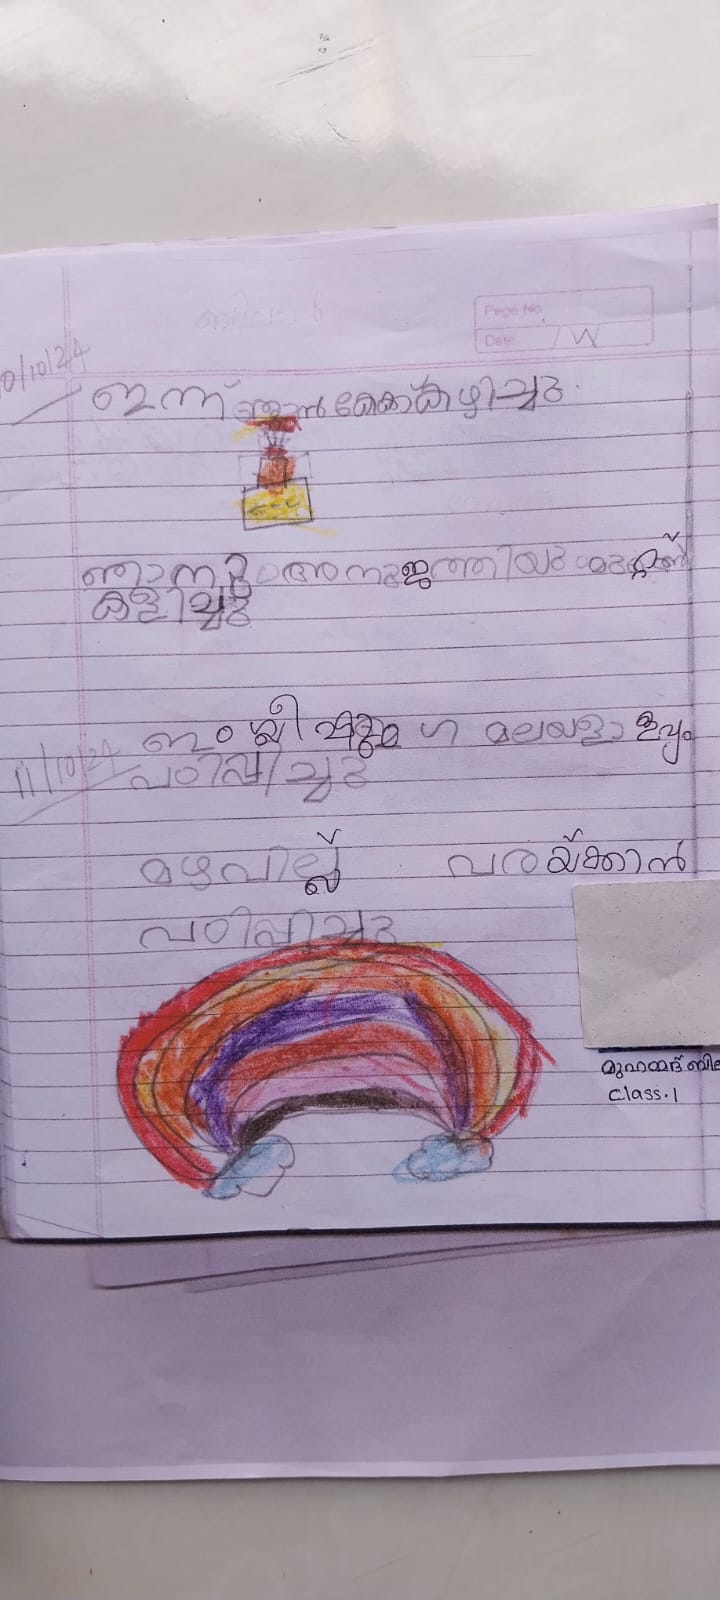 Page No.
Date / W
0/10/24
ഇന്ന് ഞാൻ കേക്ക് കഴിച്ചു.
ഞാനും അനുജത്തിയും
കളിച്ചു
11/10/24
മലയളാളവും
പഠിപ്പിച്ചു
മഴവില്ല് വരയ്ക്കാൻ
പഠിപ്പിച്ചു
മുഹമ്മദ്
Class.1